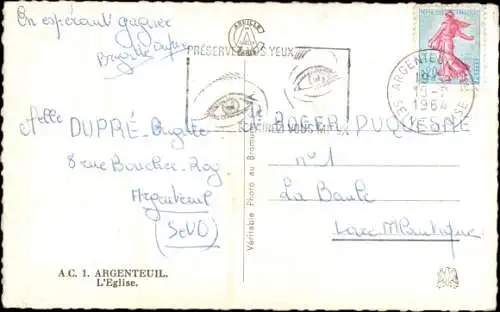 En espérant gagner
Brigitte Dupré
PRÉSERVEZ VOS YEUX
Melle DUPRÉ Brigitte
8 rue Boucher
Argenteuil
(SeVO)
A.C. 1. ARGENTEUIL.
L'Eglise.
Véritable Photo au Bromure
ARGENTEUIL
15-2
1964
SEINE
OISE
Mr ROGER DUQUESNE
n°1
La Baule
Loire Atlantique